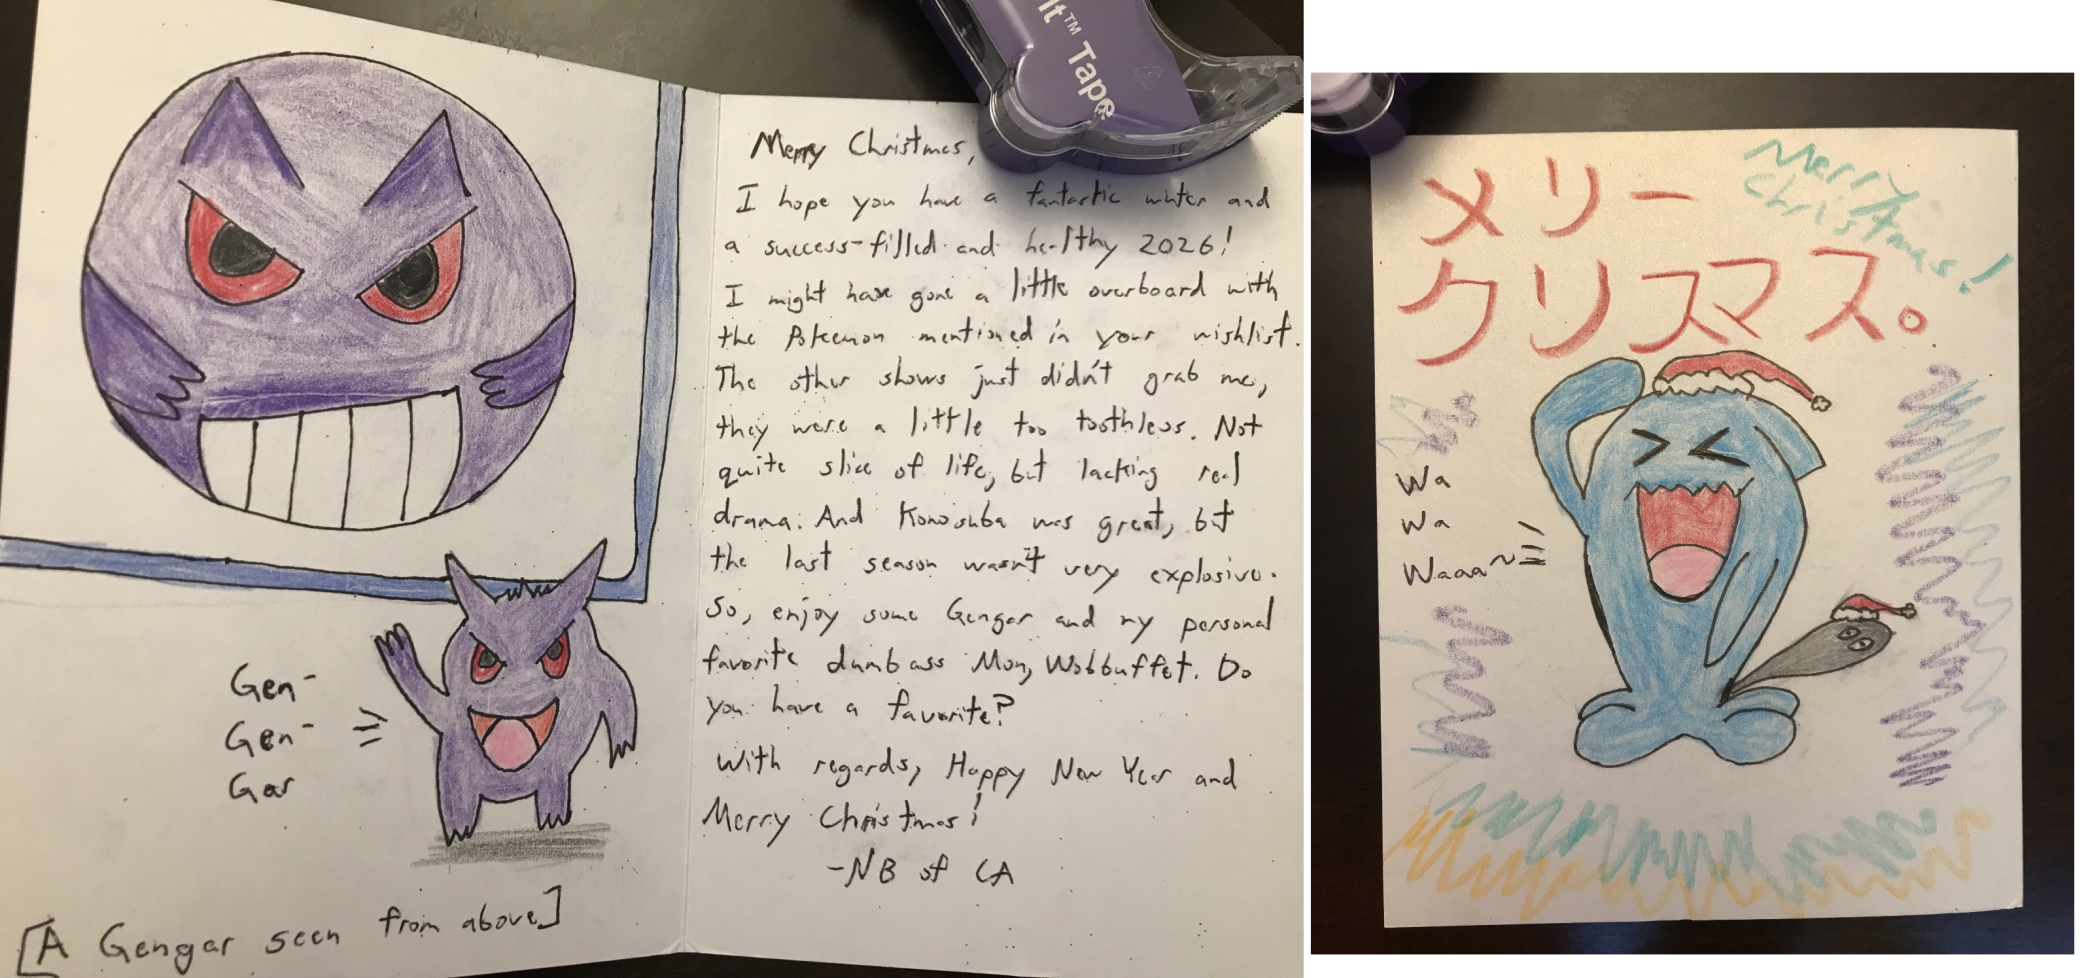 It™ Tape
Gen-
Gen-
Gar
[A Gengar seen from above]
Merry Christmas,
I hope you have a fantastic winter and
a success-filled and healthy 2026!
I might have gone a little overboard with
the Pokemon mentioned in your wishlist.
The other shows just didn't grab me,
they were a little too toothless. Not
quite slice of life, but lacking real
drama. And Konosuba was great, but
the last season wasn't very explosive.
So, enjoy some Gengar and my personal
favorite dumbass Mon, Wobbuffet. Do
you have a favorite?
With regards, Happy New Year and
Merry Christmas!
-NB of CA
メリー
クリスマス。
Merry
Christmas!
Wa
Wa
Waaa~